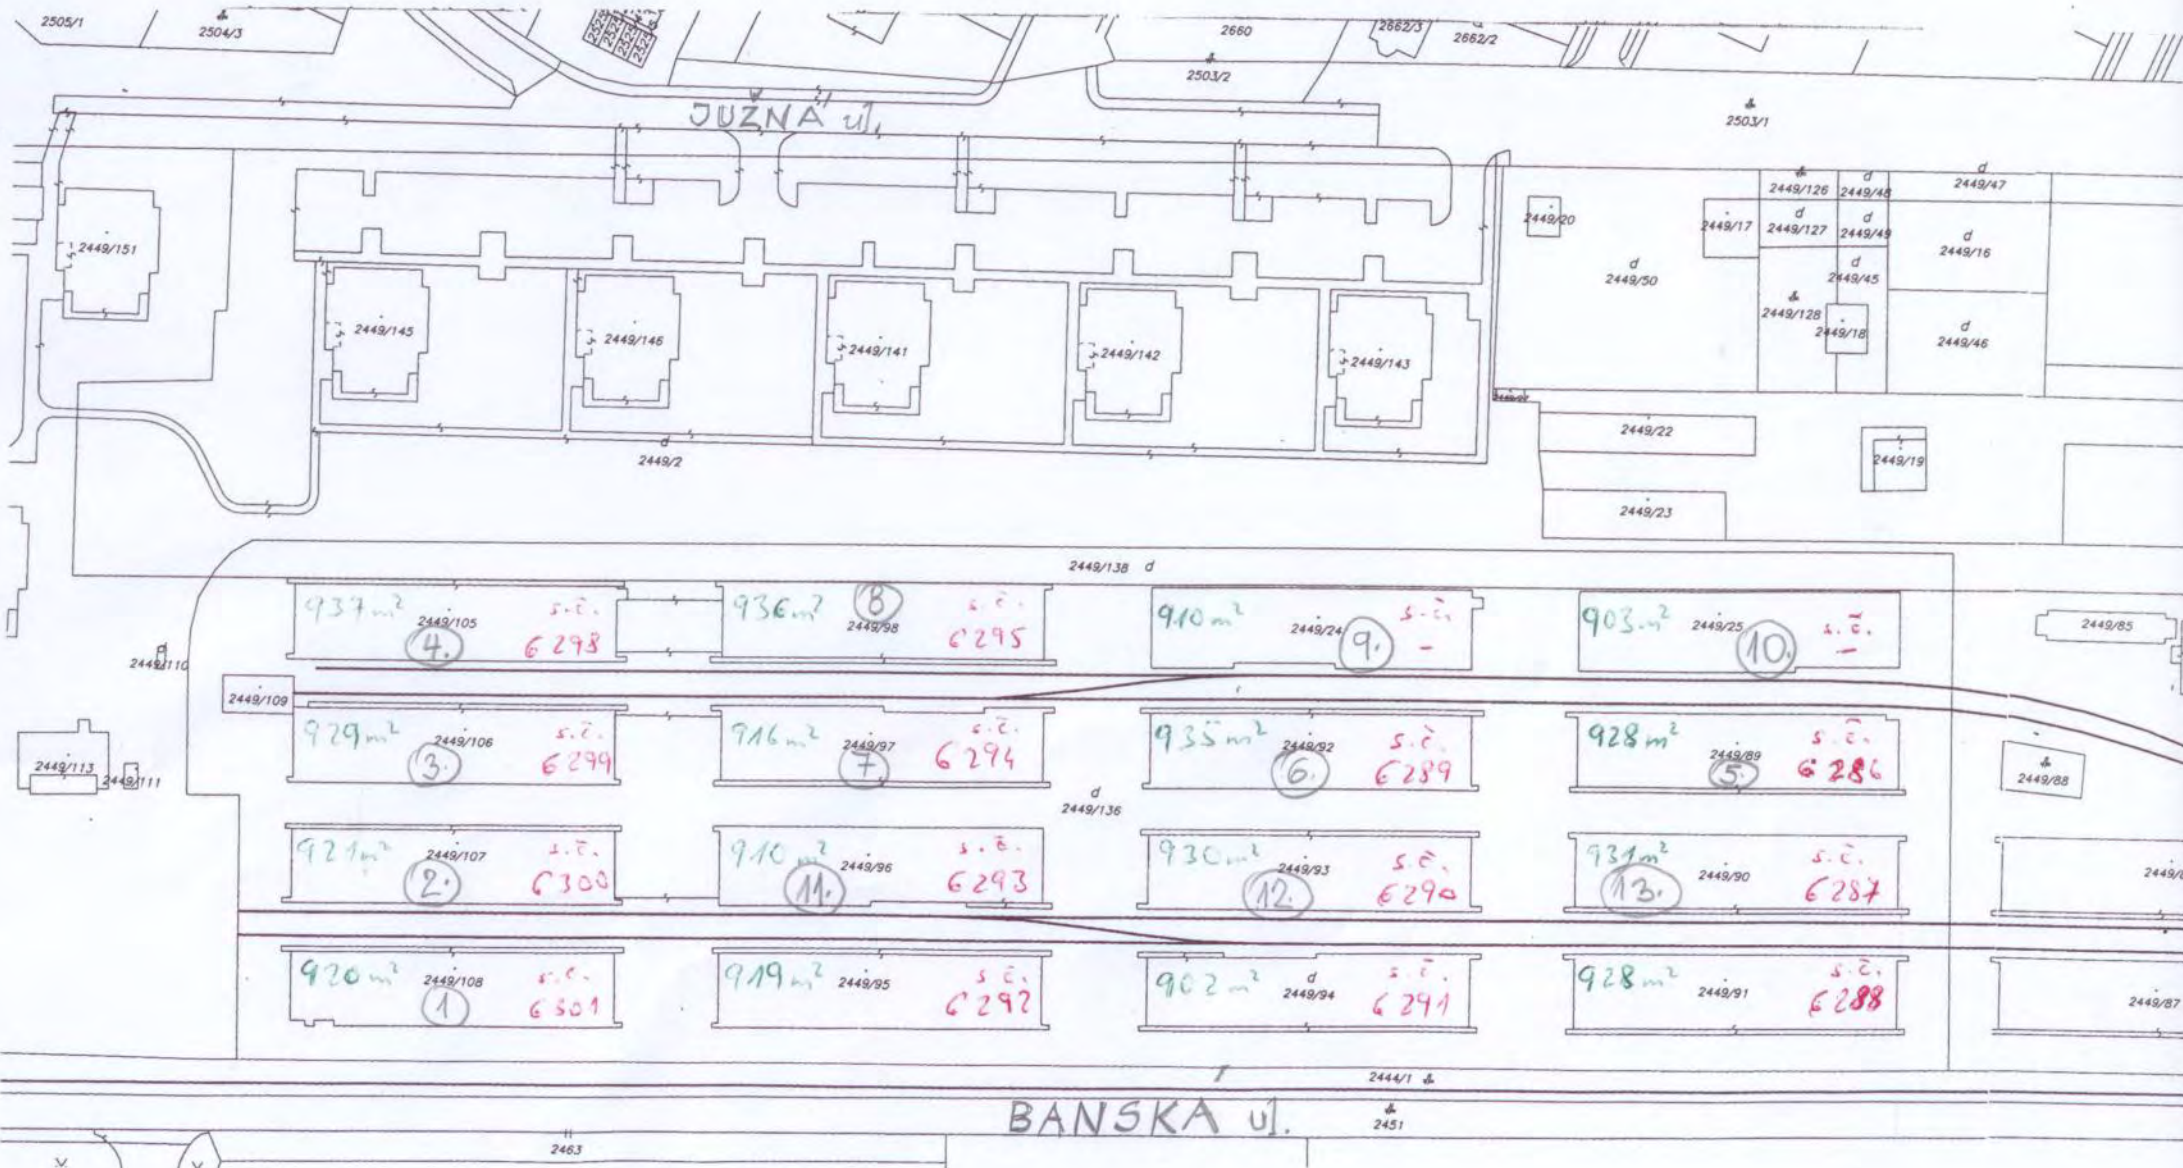 2505/1
2504/3
2660
2662/3
2662/2
2503/2
2503/1
JUŽNÁ ul.
2449/151
2449/145
2449/146
2449/141
2449/142
2449/143
2449/20
2449/17
2449/126
d
2449/48
d
2449/47
d
2449/127
d
2449/49
d
2449/16
d
2449/50
d
2449/45
2449/128
2449/18
d
2449/46
2449/22
2449/19
2449/23
d
2449/2
2449/138 d
937 m²
2449/105
4.
s.č.
6298
936 m²
8
2449/98
s.č.
6295
910 m²
2449/24
9.
s.č.
-
903 m²
2449/25
10.
s.č.
-
2449/85
2449/110
2449/109
929 m²
2449/106
3.
s.č.
6299
916 m²
2449/97
7
s.č.
6294
935 m²
2449/92
6.
s.č.
6289
928 m²
2449/89
5.
s.č.
6286
2449/88
2449/113
2449/111
d
2449/136
921 m²
2449/107
2.
s.č.
6300
910 m²
2449/96
11.
s.č.
6293
930 m²
2449/93
12.
s.č.
6290
931 m²
2449/90
13.
s.č.
6287
920 m²
2449/108
1
s.č.
6301
919 m²
2449/95
s.č.
6292
902 m²
d
2449/94
s.č.
6291
928 m²
2449/91
s.č.
6288
2449/87
2444/1
BANSKA ul.
2451
2463